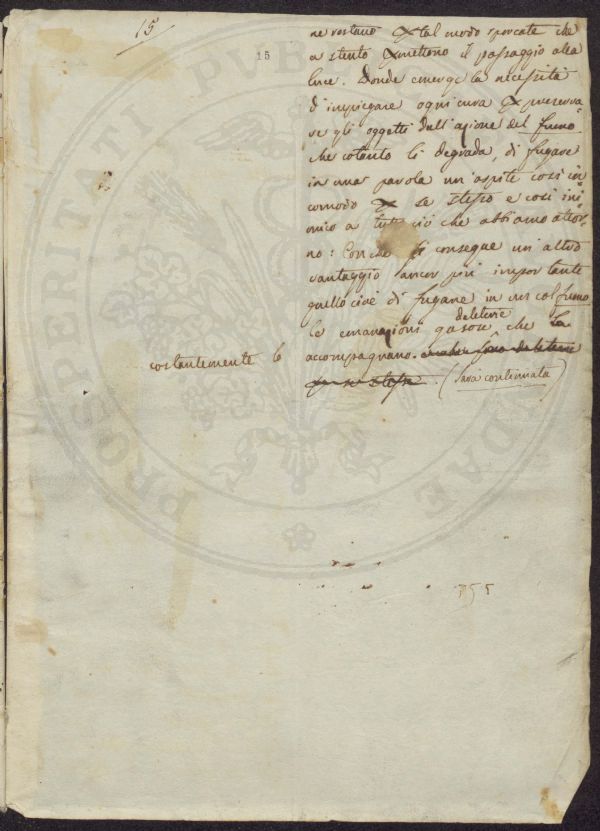 15
15
ne restano per tal modo sporcate che
a stento permettono il passaggio alla
luce. Donde emerge la necessità
d'impiegare ogni cura per preserva-
re gli oggetti dall'azione del fumo
che cotanto li degrada, di fugare
in una parola un'aspite così in
comodo per se stesso e così ini-
mico a tutto ciò che abbiamo attor-
no: Con che si consegue un altro
vantaggio ancor più importante
quello cioè di fugare in un col fumo
le emanazioni gasose deleterie che
costantemente lo accompagnano.
per se stesse. (Sarà continuata)
PROSPERITATI PVB
DAE